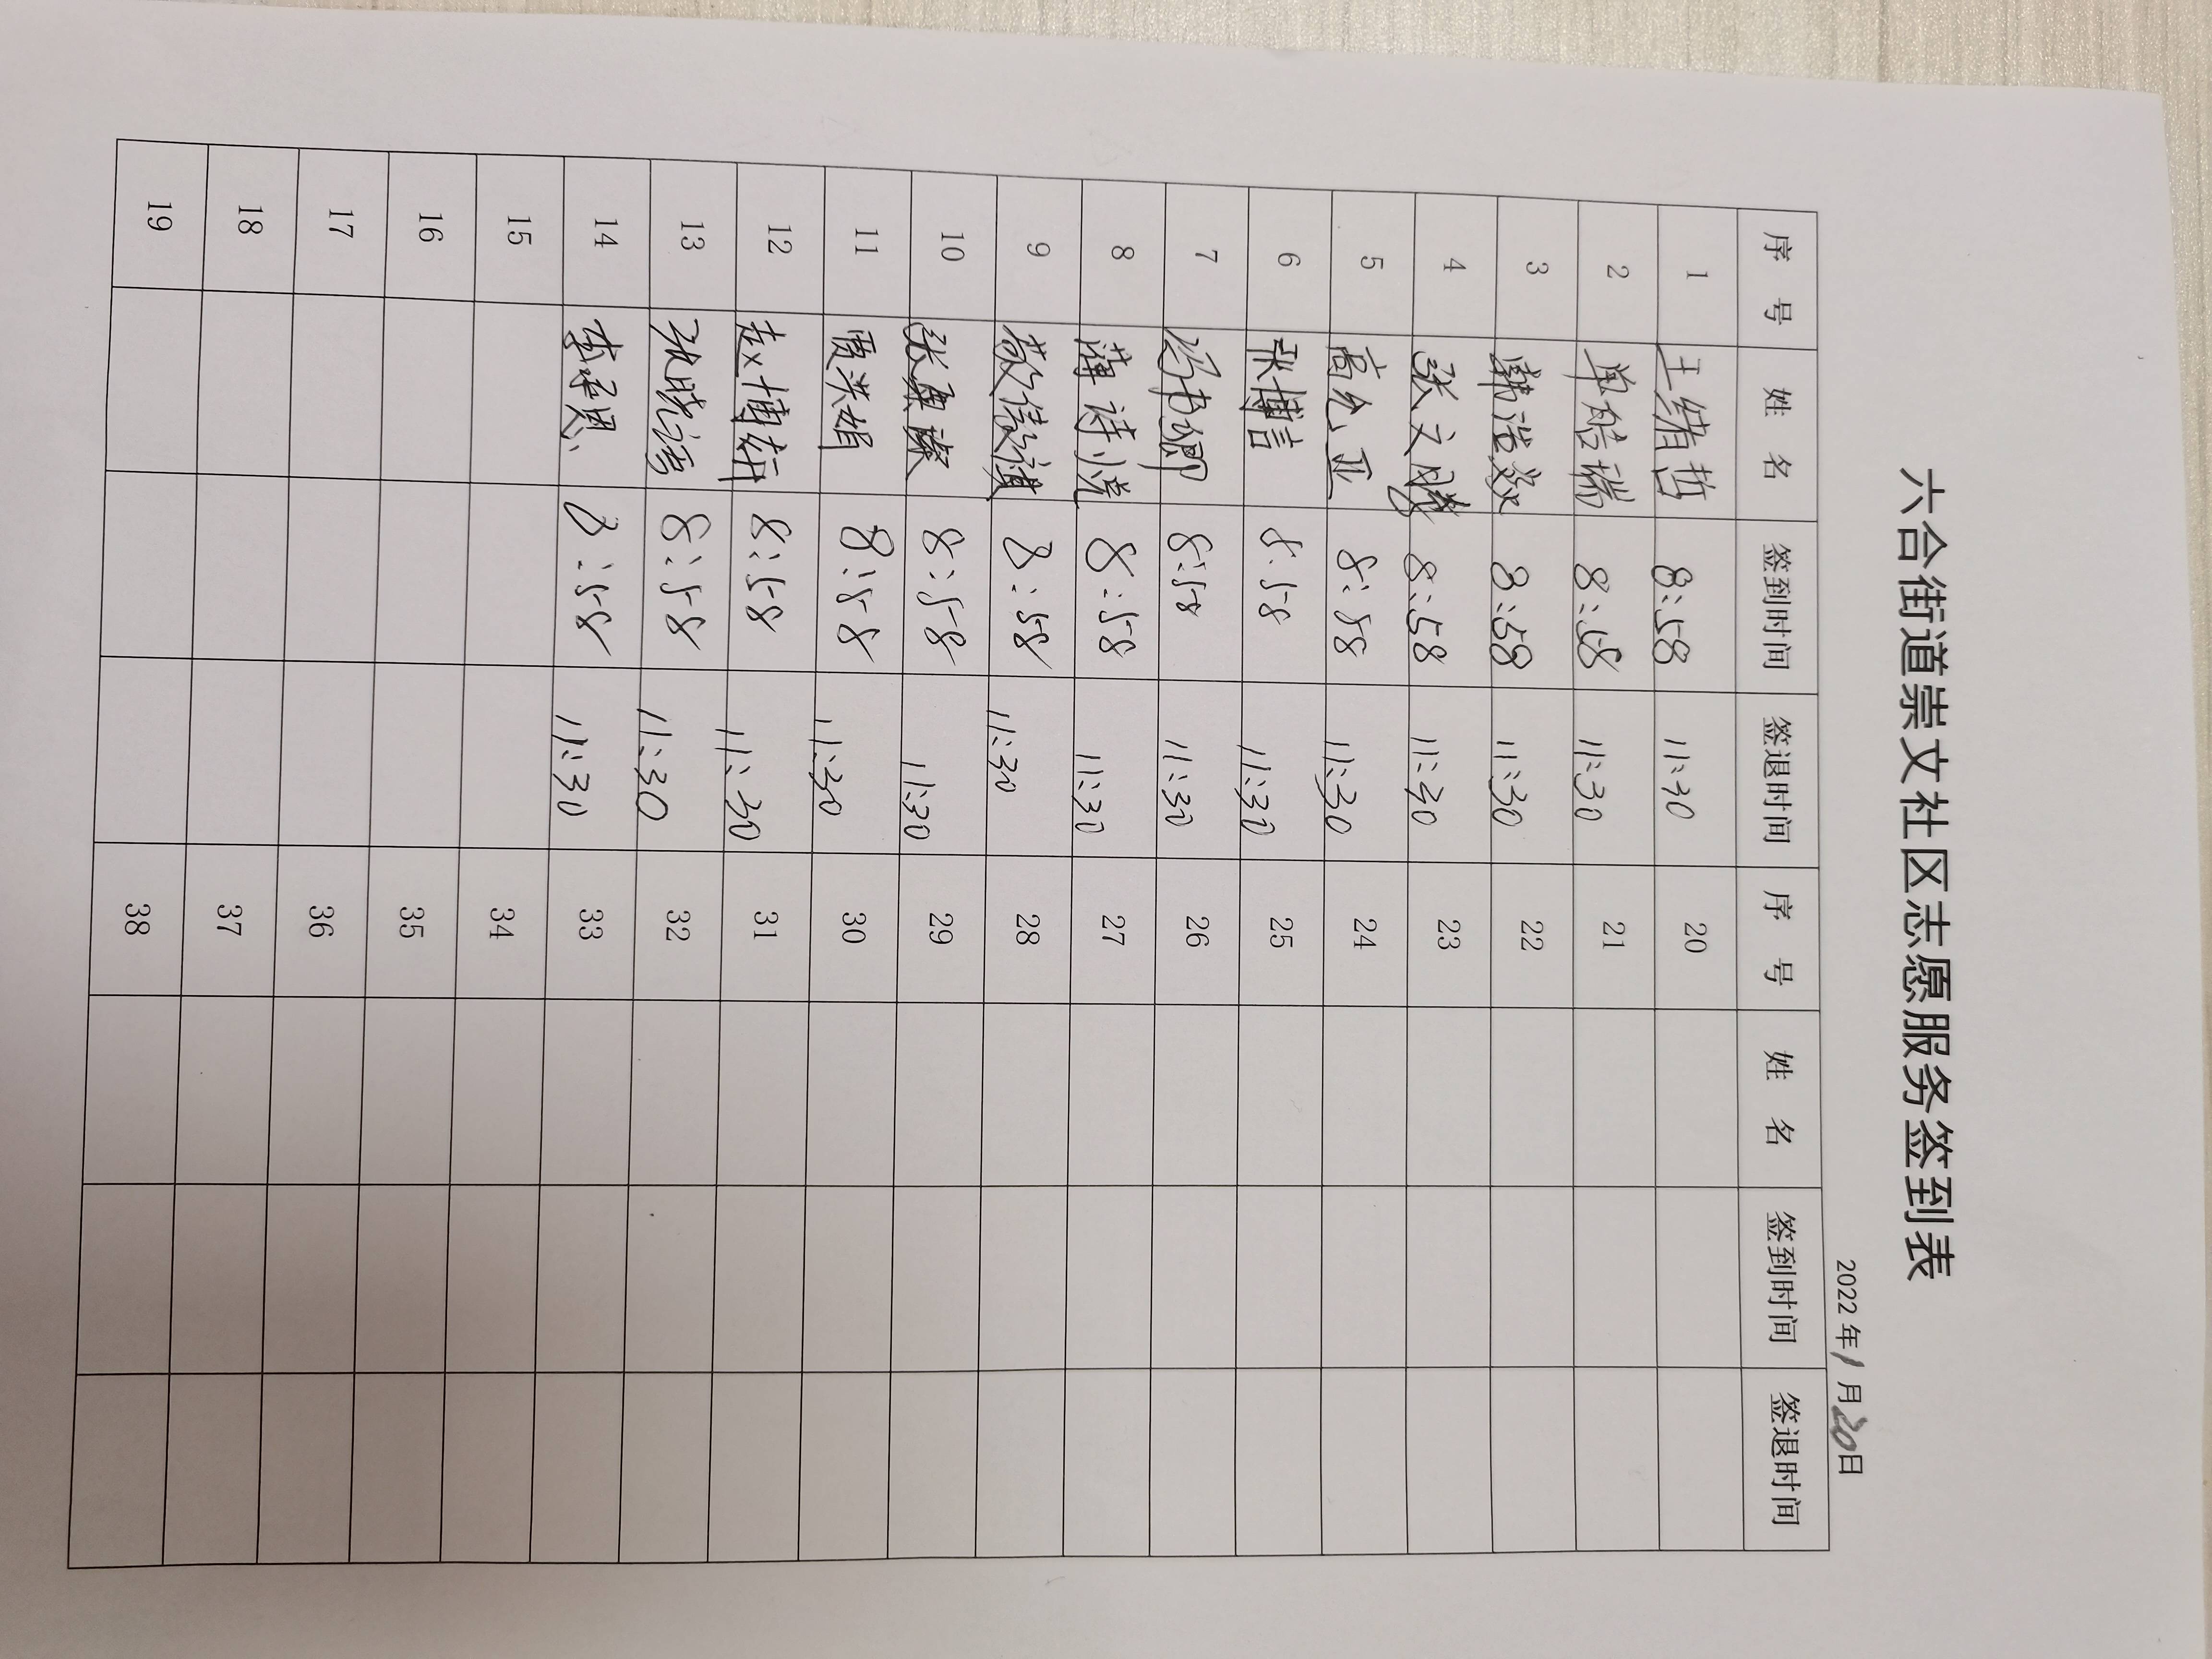 六合街道崇文社区志愿服务签到表
2022年1月20日
序号 姓名 签到时间 签退时间 序号 姓名 签到时间 签退时间
1 王绪哲 8:58 11:30 20
2 单皓瑞 8:58 11:30 21
3 韩浩毅 8:58 11:30 22
4 张文腾 8:58 11:30 23
5 高允亚 8:58 11:30 24
6 张博言 8:58 11:30 25
7 冯书卿 8:58 11:30 26
8 薄诗悦 8:58 11:30 27
9 8:58 11:30 28
10 8:58 11:30 29
11 贾洪娟 8:58 11:30 30
12 赵博妍 8:58 11:30 31
13 8:58 11:30 32
14 8:58 11:30 33
15 34
16 35
17 36
18 37
19 38